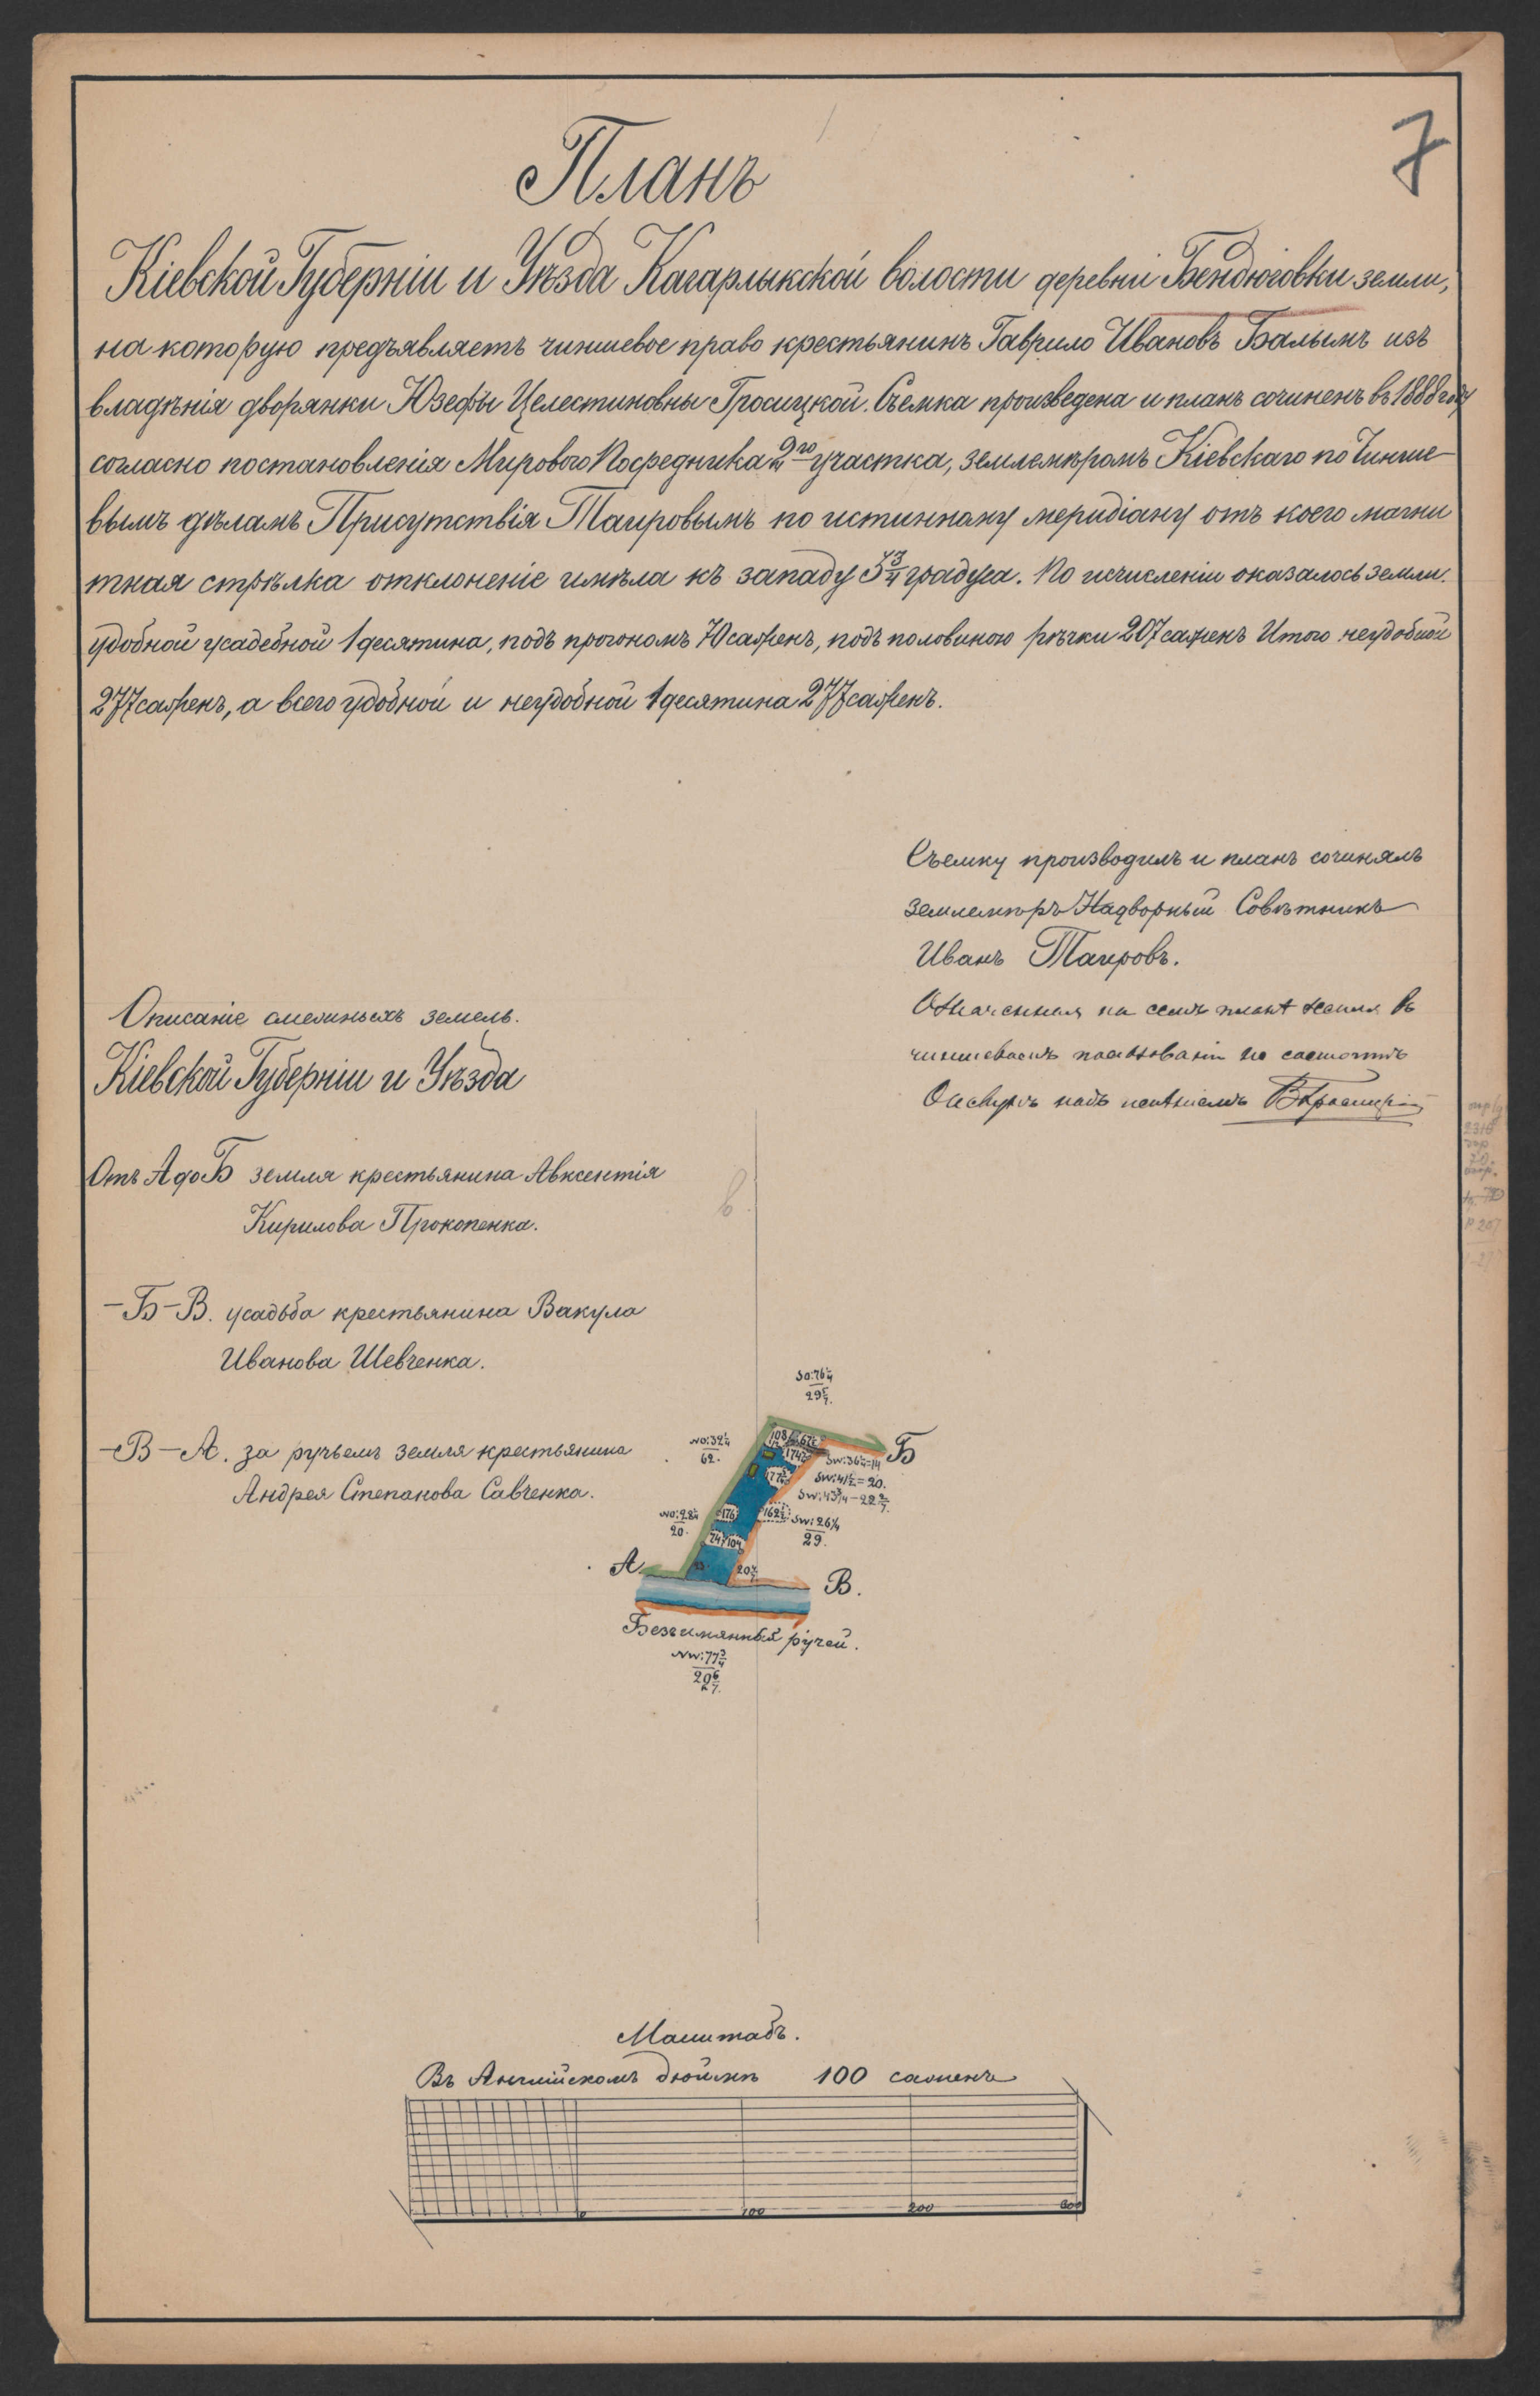 7
Планъ
Кіевской Губерніи и Уѣзда Кагарлыкской волости деревни Бендюговки земли,
на которую предъявляетъ чиншевое право крестьянинъ Гаврило Ивановъ Балымъ изъ
владѣнія дворянки Юзефы Целестиновны Гросицкой. Съемка произведена и планъ сочиненъ въ 1888 году
согласно постановленія Мирового Посредника 2го участка, землемѣромъ Кіевскаго по Чинше-
вымъ дѣламъ Присутствія Таировымъ по истинному меридіану отъ коего магни
тная стрѣлка отклоненіе имѣла къ западу градуса. По исчисленіи оказалось земли.
удобной усадебной 1 десятина, подъ прогономъ 70 саженъ, подъ половиною рѣчки 207 саженъ Итого неудобной
277 саженъ, а всего удобной и неудобной 1 десятина 277 саженъ.
Съемку производилъ и планъ сочинялъ
землемѣръ Надворный Совѣтникъ
Иванъ Таировъ.
Означенная на семъ планѣ земля въ
чиншевомъ пользованіи не состоитъ
Опекунъ надъ имѣніемъ
Описаніе смежныхъ земель.
Кіевской Губерніи и Уѣзда
Отъ А до Б земля крестьянина Авксентія
Кирилова Прокопенка.
—Б—В. усадьба крестьянина Вакула
Иванова Шевченка.
—В—А. за ручьемъ земля крестьянина
Андрея Степанова Савченка.
SO:76¼
NO:32¼
62.
Б
SW:36¼=14
SW:41½=20.
SW:43¾—22 2/7.
NO:28¼
20.
176
162½
SW:26¼
29.
74
104
А
В.
Безъимянный ручей.
NW:77¾
20 6/7.
Масштабъ.
Въ Англійскомъ дюймѣ 100 саженъ
0 100 200 300